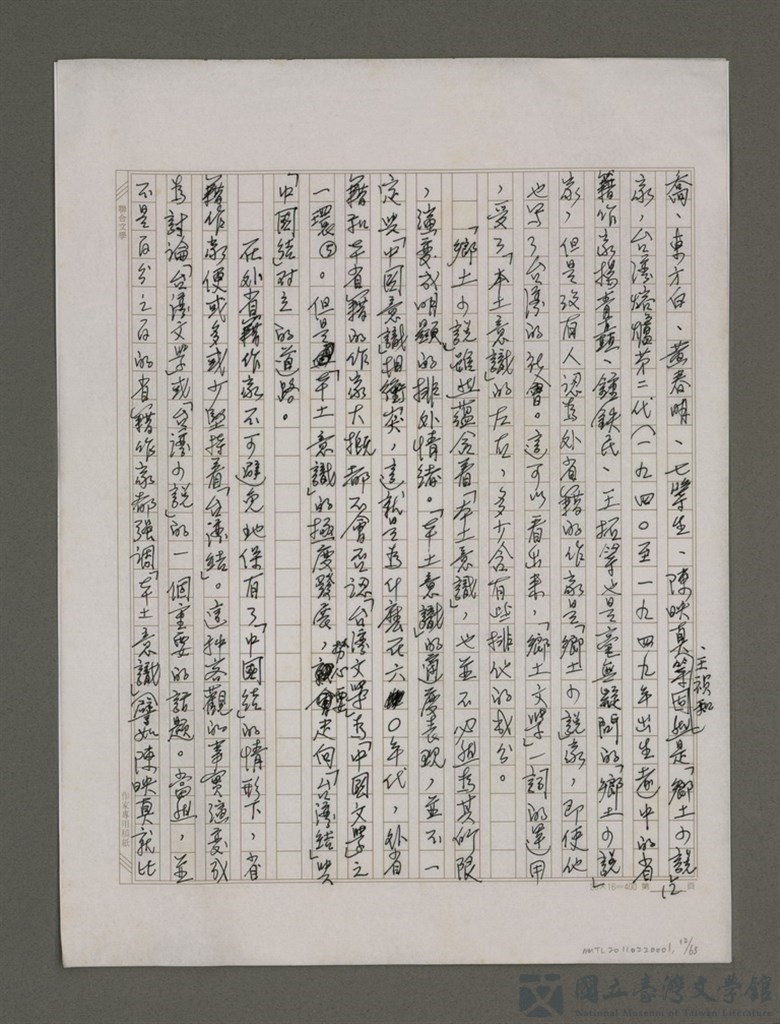 喬、東方白、黃春明、七等生、陳映真、王禎和等固然是「鄉土小說」
家，台灣熔爐第二代（一九四〇至一九四九年出生者中的省
籍作家楊青矗、鍾鉄民、王拓等也是毫無疑問的「鄉土小說」
家，但是沒有人認為外省籍的作家是「鄉土小說家，即使他
也寫了台灣的社會。這可以看出來，「鄉土文學」一詞的運用
，受了「本土意識」的左右，多少含有些排他的成分。
「鄉土小說」雖然蘊含着「本土意識」，也並不必然為其所限
，演變成明顯的排外情緒。「本土意識」的適度表現，並不一
定與「中國意識」相衝突，這就是為什麼在六〇年代，外省
籍和本省籍的作家大概都不會否認「台灣文學」為「中國文學」之
一環⑤。但是「本土意識」的極度發展，勢必要走向「台灣結」與
「中國結」對立的道路。
在外省籍作家不可避免地保有了「中國結」的情形下，省
籍作家便或多或少堅持着「台灣結」。這種客觀的事實演變成
為討論「台灣文學」或「台灣小說」的一個重要的話題。當然，並
不是百分之百的省籍作家都強調「本土意識」，譬如陳映真就比
聯合文學
作家專用稿紙
16×400 第 頁
12
NMTL20110220001, 12/65
國立臺灣文學館
National Museum of Taiwan Literature